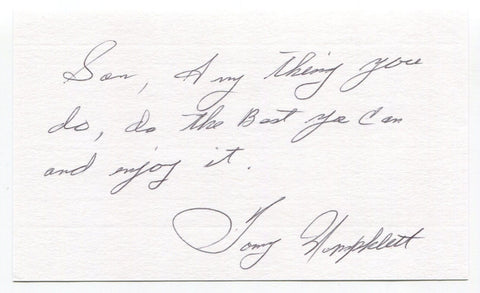 Son, Any thing you
do, do the Best ya Can
and enjoy it.
Tony